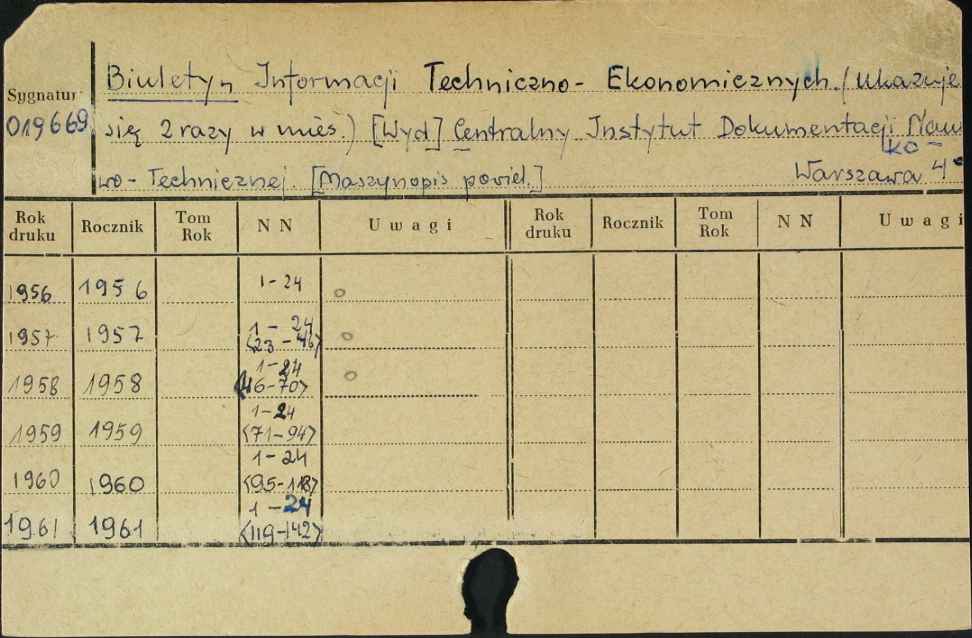 Sygnatura
019669
Biuletyn Informacji Techniczno-Ekonomicznych. (Ukazuje
się 2 razy w mies.) [Wyd] Centralny Instytut Dokumentacji Nau
ko-
wo-Technicznej. [Maszynopis powiel.] Warszawa 4°
Rok druku Rocznik Tom Rok N N Uwagi Rok druku Rocznik Tom Rok N N Uwagi
1956 1956 1-24
1957 1957 1-24
(23-46)
1958 1958 1-24
(46-70)
1959 1959 1-24
(71-94)
1960 1960 1-24
(95-118)
1961 1961 1-24
(119-142)